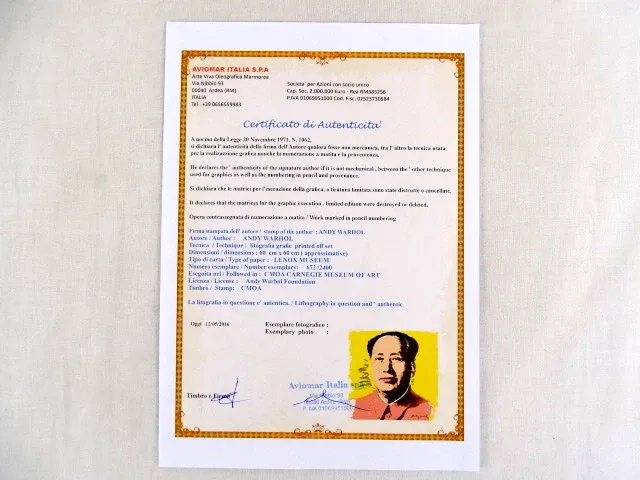 AVIOMAR ITALIA S.P.A
Arte Viva Oleografica Marmorea
Via Nibbio 93
00040 Ardea (RM)
ITALIA
Tel. +39 0656559983
Societa' per Azioni con socio unico
Cap. Soc. 2.000.000 Euro - Rea RM385256
P.IVA 01069951000 Cod. Fisc. 02523730584
Certificato di Autenticita'
A norma della Legge 20 Novembre 1971, N. 1062,
si dichiara l' autenticità della firma dell'Autore qualora fosse non meccanica, tra l' altro la tecnica usata
per la realizzazione grafica nonche la numerazione a matita e la provenienza.
He declares the ' authenticity of the signature author if it is not mechanical , between the ' other technique
used for graphics as well as the numbering in pencil and provenance.
Si dichiara che le matrici per l'esecuzione della grafica, a tiratura limitata sono state distrutte o cancellate.
It declares that the matrices for the graphic execution , limited edition were destroyed or deleted.
Opera contrassegnata di numerazione a matita / Work marked in pencil numbering
Firma stampata dell' autore / stamp of the author :ANDY WARHOL
Autore / Author : ANDY WARHOL
Tecnica / Technique : litografia grafic printed off set
Dimensioni / dimensions : 60 cm x 60 cm ( approssimative)
Tipo di carta / Type of paper : LENOX MUSEUM
Numero esemplare / Number exemplary: 872 /2400
Eseguita nel / Followed in : CMOA CARNEGIE MUSEUM OF ART
Licenza / License : Andy Warhol Foundation
Timbro / Stamp: CMOA
La litografia in questione e' autentica. / Lithography in question and ' authentic
Oggi 12/05/2016
Esemplare fotografico :
Exemplary photo :
Timbro e Firma
Aviomar Italia
Via Nibbio 93
P. IVA 01069951000